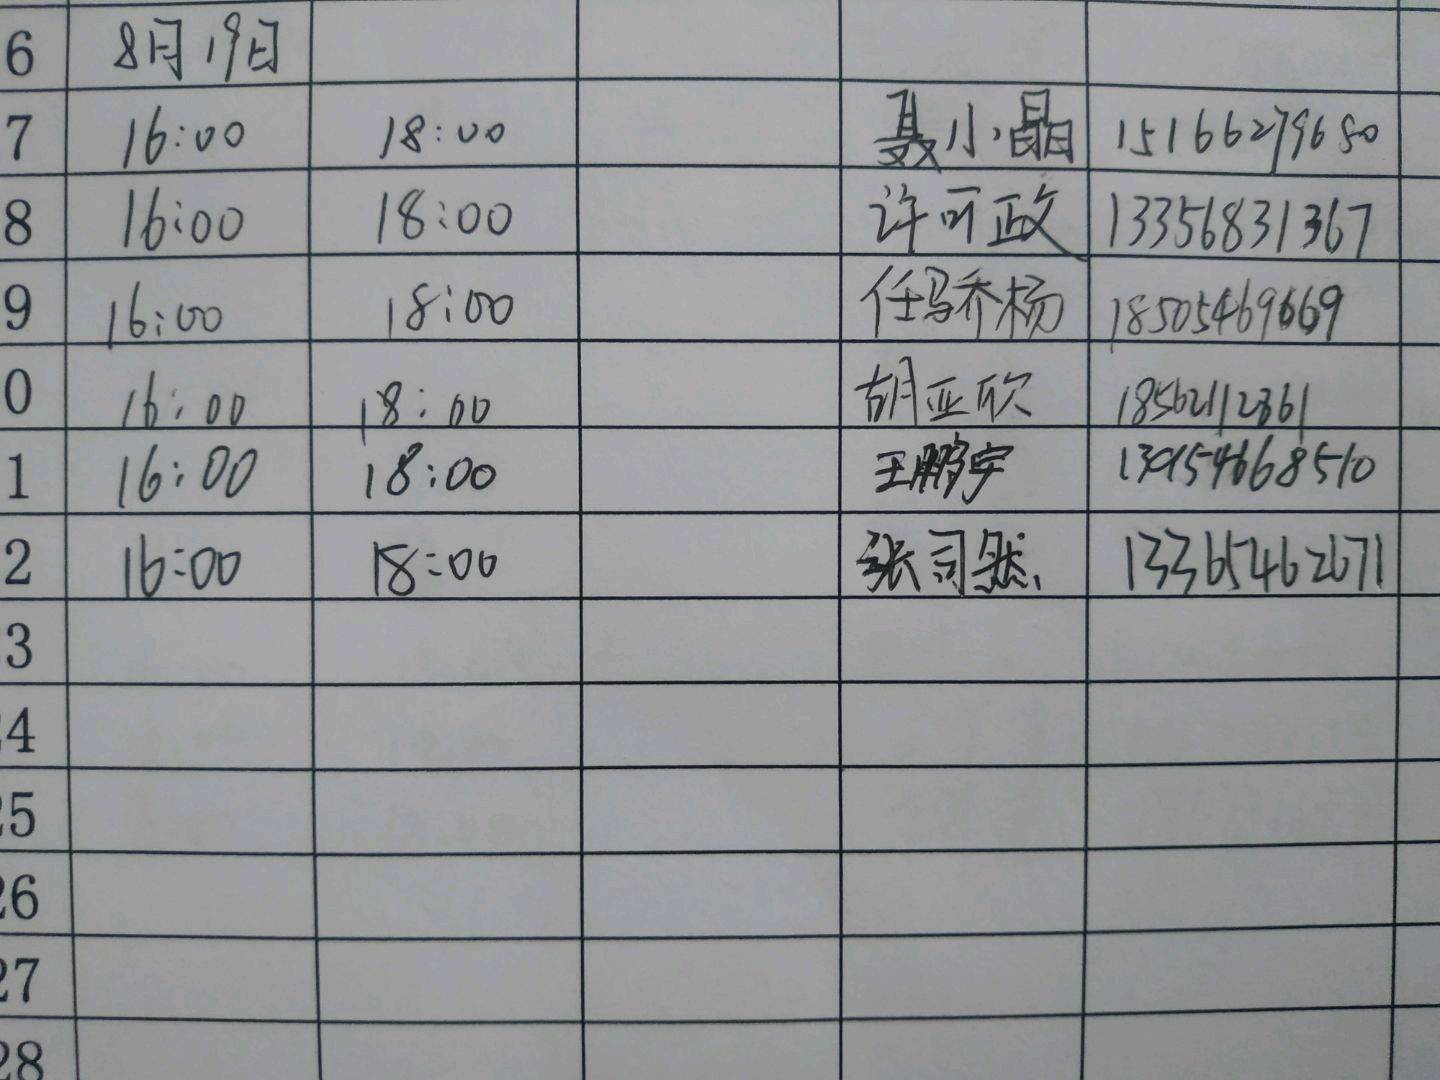 6 8月19日
7 16:00 18:00 聂小晶 15166279680
8 16:00 18:00 许可政 13356831367
9 16:00 18:00 任马乔杨 18505469669
0 16:00 18:00 胡亚欣 18562112361
1 16:00 18:00 王鹏宇 139154668510
2 16:00 18:00 张司然 13365462671
3
24
25
26
27
28